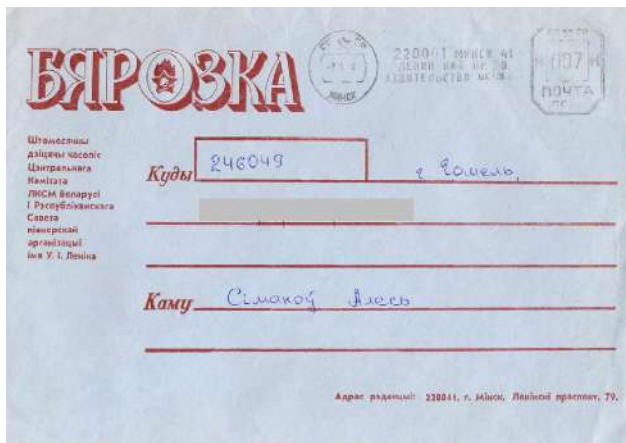 БЯРОЗКА
220041 МИНСК 41
007
ПОЧТА
МИНСК
Штомесячны
дзіцячы часопіс
Цэнтральнага
Камітэта
ЛКСМ Беларусі
і Рэспубліканскага
Савета
піянерскай
арганізацыі
імя У. І. Леніна
Куды 246049 г. Гомель,
Каму Сімакоў Алесь
Адрас рэдакцыі: 220041, г. Мінск, Ленінскі праспект, 79.